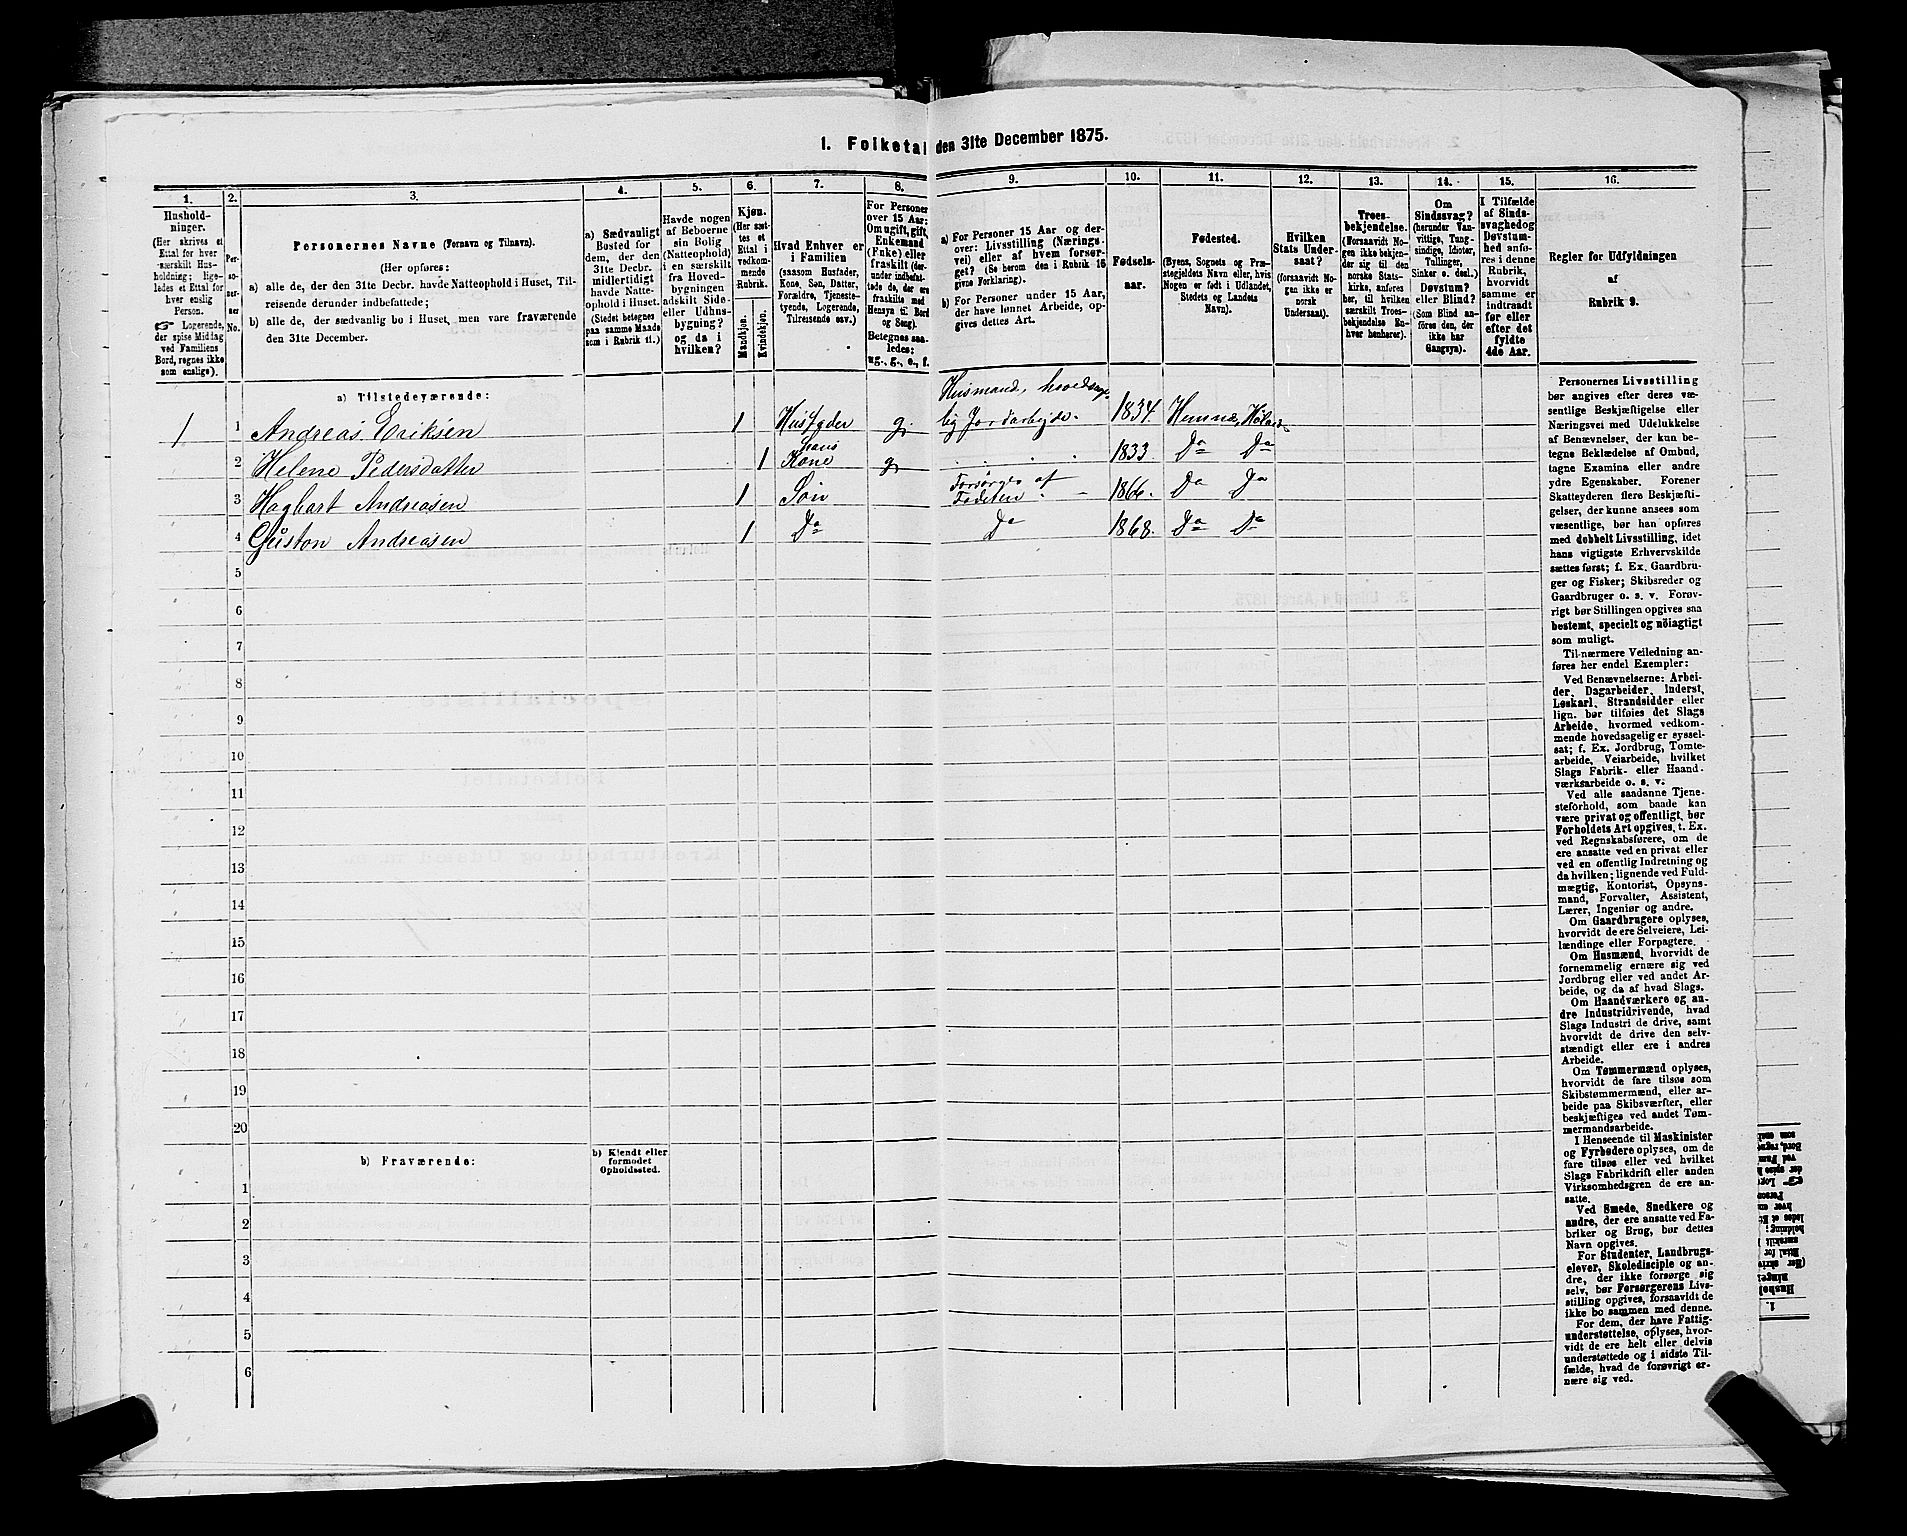 1. Folketal den 31te December 1875.
1.
Hushold-
ninger.
(Her skrives et
Ettal for hver
særskilt Hus-
holdning; lige-
ledes et Ettal for
hver enslig
Person.
☞ Logerende,
der spise Middag
ved Familiens
Bord, regnes ikke
som enslige).
2.
Per-
so-
ner-
nes
No.
3.
Personernes Navne (Fornavn og Tilnavn).
(Her opføres:
a) alle de, der den 31te Decbr. havde Natteophold i Huset, Til-
reisende derunder indbefattede;
b) alle de, der sædvanlig bo i Huset, men vare fraværende
den 31te December.
4.
a) Sædvanligt
Bosted for
dem, der den
31te Decbr.
midlertidigt
havde Natte-
ophold i Huset.
(Stedet betegnes
paa samme Maade
som i Rubrik 11.)
5.
Havde nogen
af Beboerne
sin Bolig
(Natteophold)
i en særskilt
fra Hoved-
bygningen
adskilt Side-
eller Udhus-
bygning?
og da i
hvilken?
6.
Kjøn.
(Her sæt-
tes et
Ettal i
vedkom-
mende
Rubrik.
Mandkjøn.
Kvindekjøn.
7.
Hvad Enhver er
i Familien
(saasom Husfader,
Kone, Søn, Datter,
Forældre, Tjeneste-
tyende, Logerende,
Tilreisende osv.)
8.
For Personer
over 15 Aar:
Om ugift, gift,
Enkemand
(Enke) eller
fraskilt (der-
under indbefat-
tede de, der ere
fraskilte med
Hensyn til Bord
og Seng).
Betegnes saa-
ledes:
ug., g., e., f.
9.
a) For Personer 15 Aar og der-
over: Livsstilling (Nærings-
vei) eller af hvem forsør-
get? (Se herom den i Rubrik 16
givne Forklaring).
b) For Personer under 15 Aar,
der have lønnet Arbeide, op-
gives dettes Art.
10.
Fødsels-
aar.
11.
Fødested.
(Byens, Sognets og Præ-
stegjeldets Navn eller, hvis
Nogen er født i Udlandet,
Stedets og Landets
Navn).
12.
Hvilken
Stats Under-
saat?
(forsaavidt No-
gen ikke er
norsk
Undersaat).
13.
Troes-
bekjendelse.
(Forsaavidt No-
gen ikke bekjen-
der sig til den
norske Stats-
kirke, anføres
her, til hvilken
særskilt Troes-
bekjendelse En-
hver henhører).
14.
Om
Sindssvag?
(herunder Van-
vittige, Tung-
sindige, Idioter,
Tullinger,
Sinker o. desl.)
Døvstum?
eller Blind?
(Som Blind an-
føres den, der
ikke har
Gangsyn).
15.
I Tilfælde
af Sinds-
svaghed og
Døvstum-
hed anfø-
res i denne
Rubrik,
hvorvidt
samme er
indtraadt
før eller
efter det
fyldte
4de Aar.
16.
Regler for Udfyldningen
af
Rubrik 9.
a) Tilstedeværende:
1 1 Andreas Eriksen 1 Husfader g. Husmand, hovedsage-
lig Jordarbejde. 1834. Hemnæs, Høland
2 Helene Pedersdatter 1 hans
Kone g. 1833. Do Do
3 Hagbart Andreasen 1 Søn Forsørges af
Faderen. 1866. Do Do
4 Guston Andreasen 1 Do Do 1868. Do Do
5
6
7
8
9
10
11
12
13
14
15
16
17
18
19
20
b) Fraværende:
b) Kjendt eller
formodet
Opholdssted.
1
2
3
4
5
6
Personernes Livsstilling
bør angives efter deres væ-
sentlige Beskjæftigelse eller
Næringsvei med Udelukkelse
af Benævnelser, der kun be-
tegne Beklædelse af Ombud,
tagne Examina eller andre
ydre Egenskaber. Forener
Skatteyderen flere Beskjæfti-
gelser, der kunne ansees som
væsentlige, bør han opføres
med dobbelt Livsstilling, idet
hans vigtigste Erhvervskilde
sættes først; f. Ex. Gaardbru-
ger og Fisker; Skibsreder og
Gaardbruger o. s. v. Forøv-
rigt bør Stillingen opgives saa
bestemt, specielt og nöiagtigt
som muligt.
Til nærmere Veiledning an-
føres her endel Exempler:
Ved Benævnelserne: Arbei-
der, Dagarbeider, Inderst,
Løskarl, Strandsidder eller
lign. bør tilføies det Slags
Arbeide, hvormed vedkom-
mende hovedsagelig er syssel-
sat; f. Ex. Jordbrug, Tomte-
arbeide, Veiarbeide, hvilket
Slags Fabrik- eller Haand-
værksarbeide o. s. v.
Ved alle saadanne Tjene-
steforhold, som baade kan
være privat og offentligt, bør
Forholdets Art opgives, t. Ex.
ved Regnskabsførere, om de
ere ansatte ved en privat eller
ved en offentlig Indretning og
da hvilken; lignende ved Fuld-
mægtig, Kontorist, Opsyns-
mand, Forvalter, Assistent,
Lærer, Ingeniør og andre.
Om Gaardbrugere oplyses,
hvorvidt de ere Selveiere, Lei-
lændinge eller Forpagtere.
Om Husmænd, hvorvidt de
fornemmelig ernære sig ved
Jordbrug eller ved andet Ar-
beide, og da af hvad Slags.
Om Haandværkere og an-
dre Industridrivende, hvad
Slags Industri de drive, samt
hvorvidt de drive den selv-
stændigt eller ere i andres
Arbeide.
Om Tømmermænd oplyses,
hvorvidt de fare tilsøs som
Skibstømmermænd, eller ar-
beide paa Skibsværfter, eller
beskjæftiges ved andet Tøm-
mermandsarbeide.
I Henseende til Maskinister
og Fyrbødere oplyses, om de
fare tilsøs eller ved hvilket
Slags Fabrikdrift eller anden
Virksomhedsgren de ere an-
satte.
Ved Smede, Snedkere og
andre, der ere ansatte ved Fa-
briker og Brug, bør dettes
Navn opgives.
For Studenter, Landbrugs-
elever, Skoledisciple og an-
dre, der ikke forsørge sig
selv, bør Forsørgerens Livs-
stilling opgives, forsaavidt de
ikke bo sammen med denne.
For dem, der have Fattig-
understøttelse, oplyses, hvor-
vidt de ere helt eller delvis
understøttede og i sidste Til-
fælde, hvad de forøvrigt er-
nære sig ved.